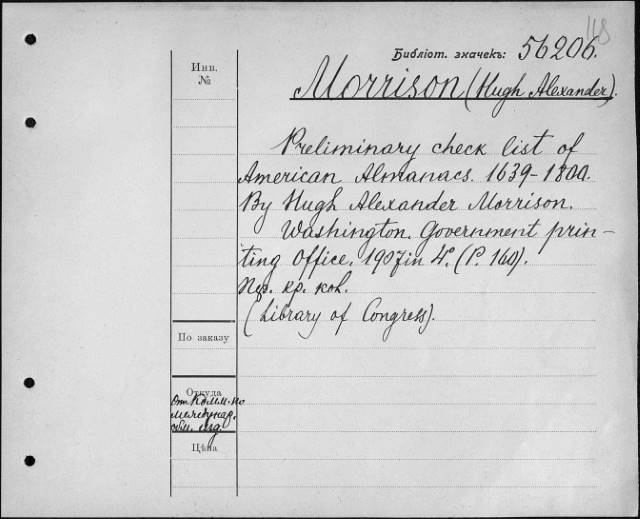 118
Библiот. значекъ: 56206.
Инв.
№
Morrison (Hugh Alexander).
Preliminary check list of
American Almanacs. 1639-1800.
By Hugh Alexander Morrison.
Washington. Government prin-
ting Office. 1907 in 4°. (P. 160).
кр. кол.
(Library of Congress).
По заказу
Откуда
От Комм. по
междунар.
обм. изд.
Цѣна